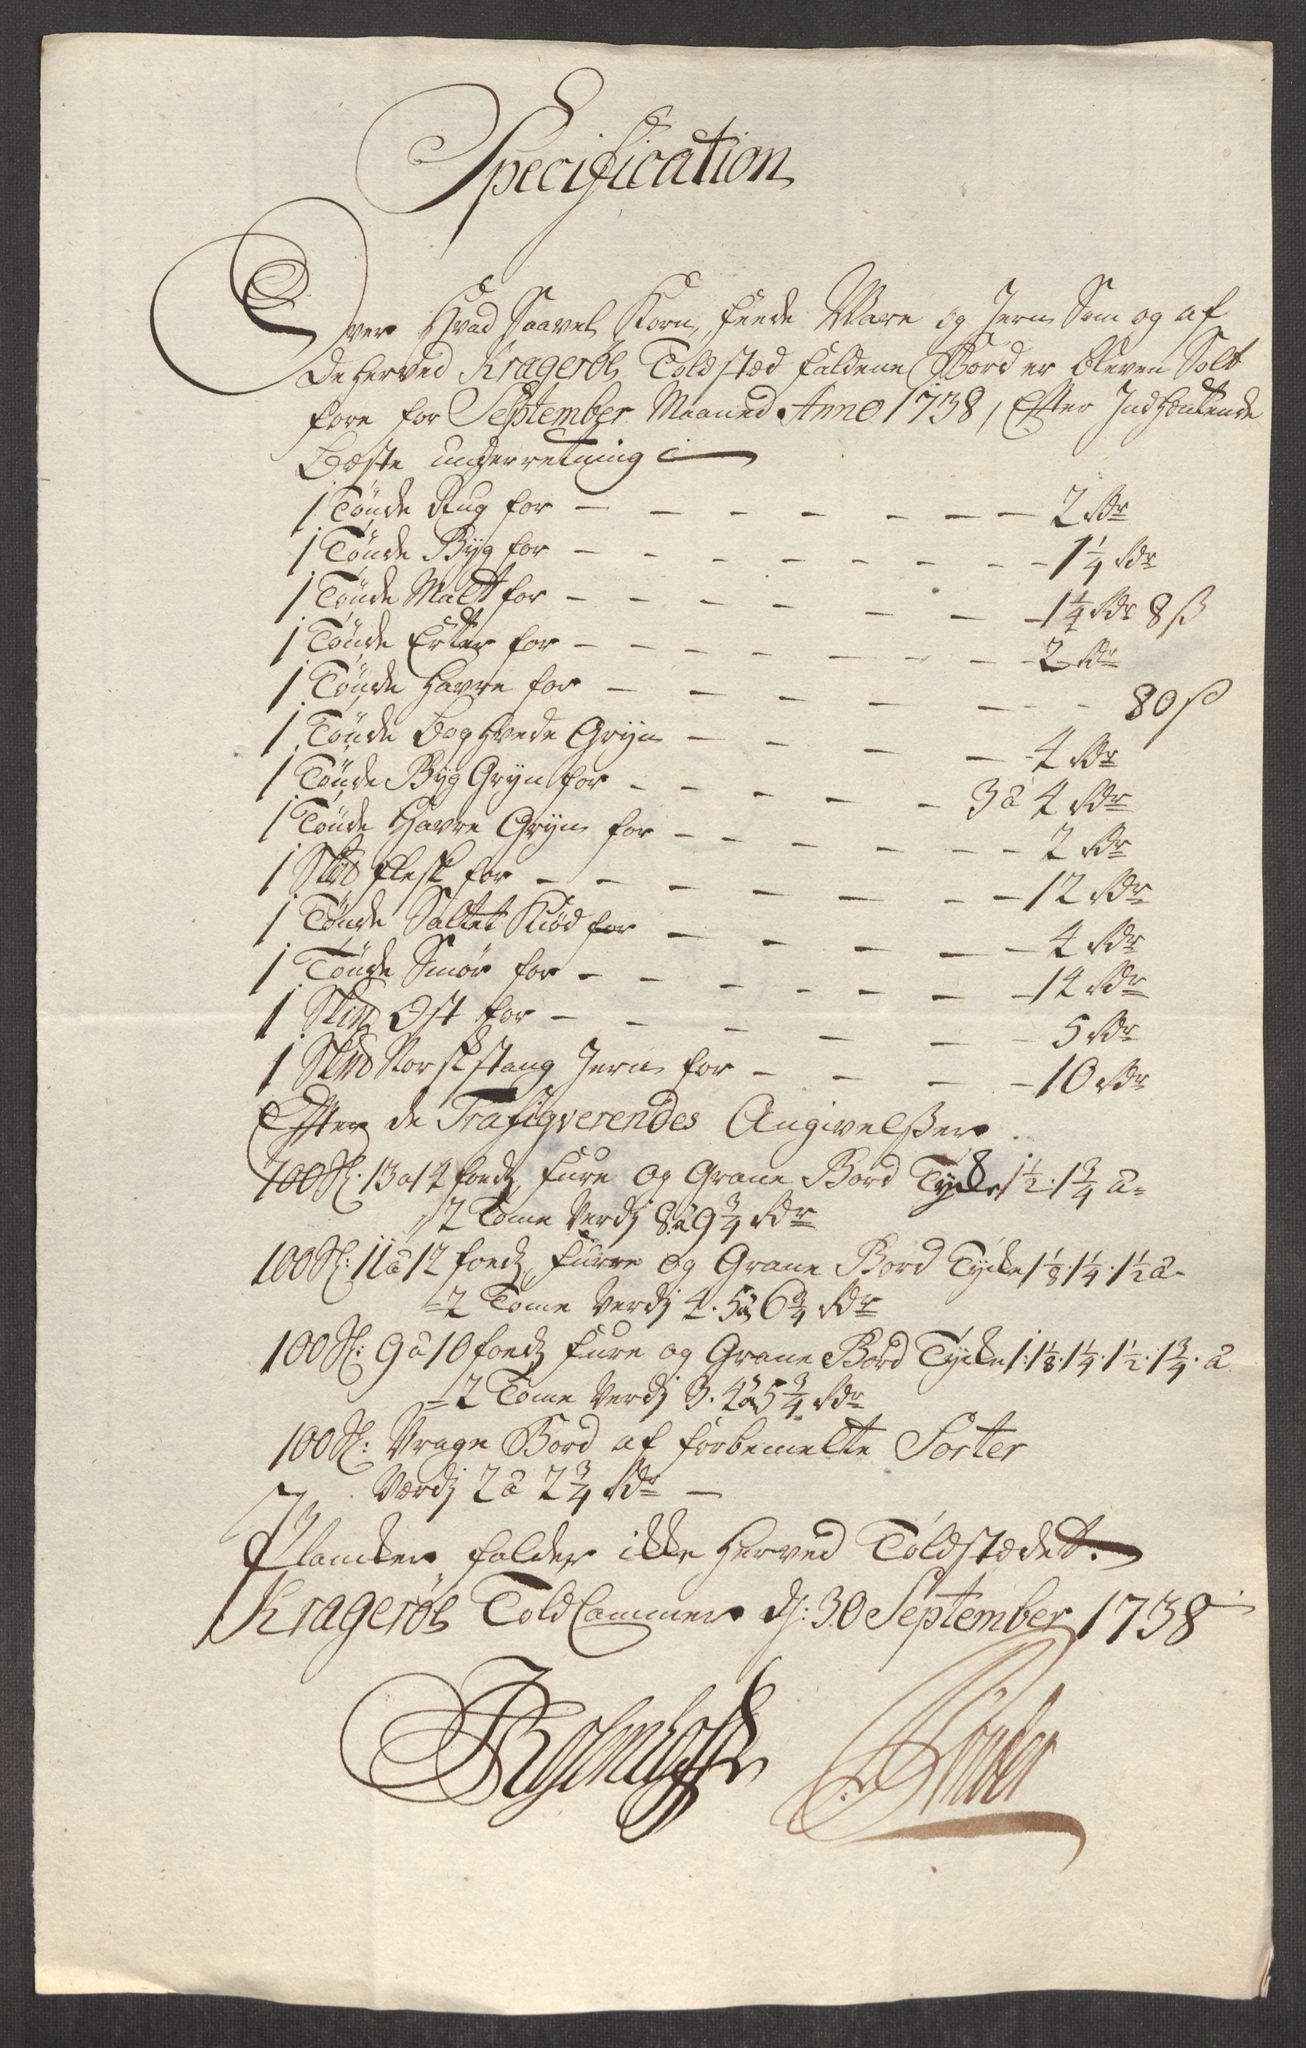 Specification
Over Hvad Saavel Korn, feede Ware og Jern Som og af
De herved Kragerøes Toldstæd faldene Bord er bleven Solt
fore for September Maaned Anno 1738, Efter Indhentende
Beste underretning
1 Tönde Rug for - - - - - - - 2 Rdr
1 Tönde Byg for - - - - - - - 1 1/4 Rdr
1 Tönde Malt for - - - - - - 1 1/4 Rdr 8 ß
1 Tönde Erter for - - - - - - 2 Rdr
1 Tönde Havre for - - - - - - 80 ß
1 Tönde Boghvede Gryn - - - - - 4 Rdr
1 Tönde Byg Gryn for - - - - - 3 à 4 Rdr
1 Tönde Havre Gryn for - - - - - 2 Rdr
1 Skpd flesk for - - - - - - - 12 Rdr
1 Tönde Saltet Kiød for - - - - - 4 Rdr
1 Tönde Smør for - - - - - - - 14 Rdr
1 Skpd Ost for - - - - - - 5 Rdr
1 Skpd Norsk stang Jern for - - - - 10 Rdr
Efter de Trafiqverendes Angivelßer
100 st: 13 a 14 foedz fure og Grane Bord Tycke 1 1/2. 1 3/4 à
2 Tome Verdj 8 à 9 3/4 Rdr
100 st: 11 à 12 foedz furre og Grane Bord Tycke 1 1/8. 1 1/4. 1 1/2 à
2 Tome Verdj 4. 5 à 6 3/4 Rdr
100 st: 9 à 10 foedz furre og Grane Bord Tycke 1. 1 1/8. 1 1/4. 1 1/2. 1 3/4. à
2 Tome Verdj 3. 4 à 5 3/4 Rdr
100 st: Vrage Bord af forbemelte Sorter
Værdj 2 à 2 3/4 Rdr
Plancker falder ikke herved Toldstædet.
Kragerøes Told Cammer d: 30 September 1738